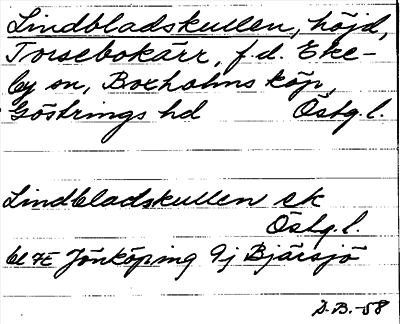 Lindbladskullen, höjd,
Torsebokärr, f.d. Eke-
by sn, Boxholms köp,
Göstrings hd Östg.l.
Lindbladskullen ek
Östg.l.
bl 7E Jönköping 9j Bjärsjö
S.B.-58